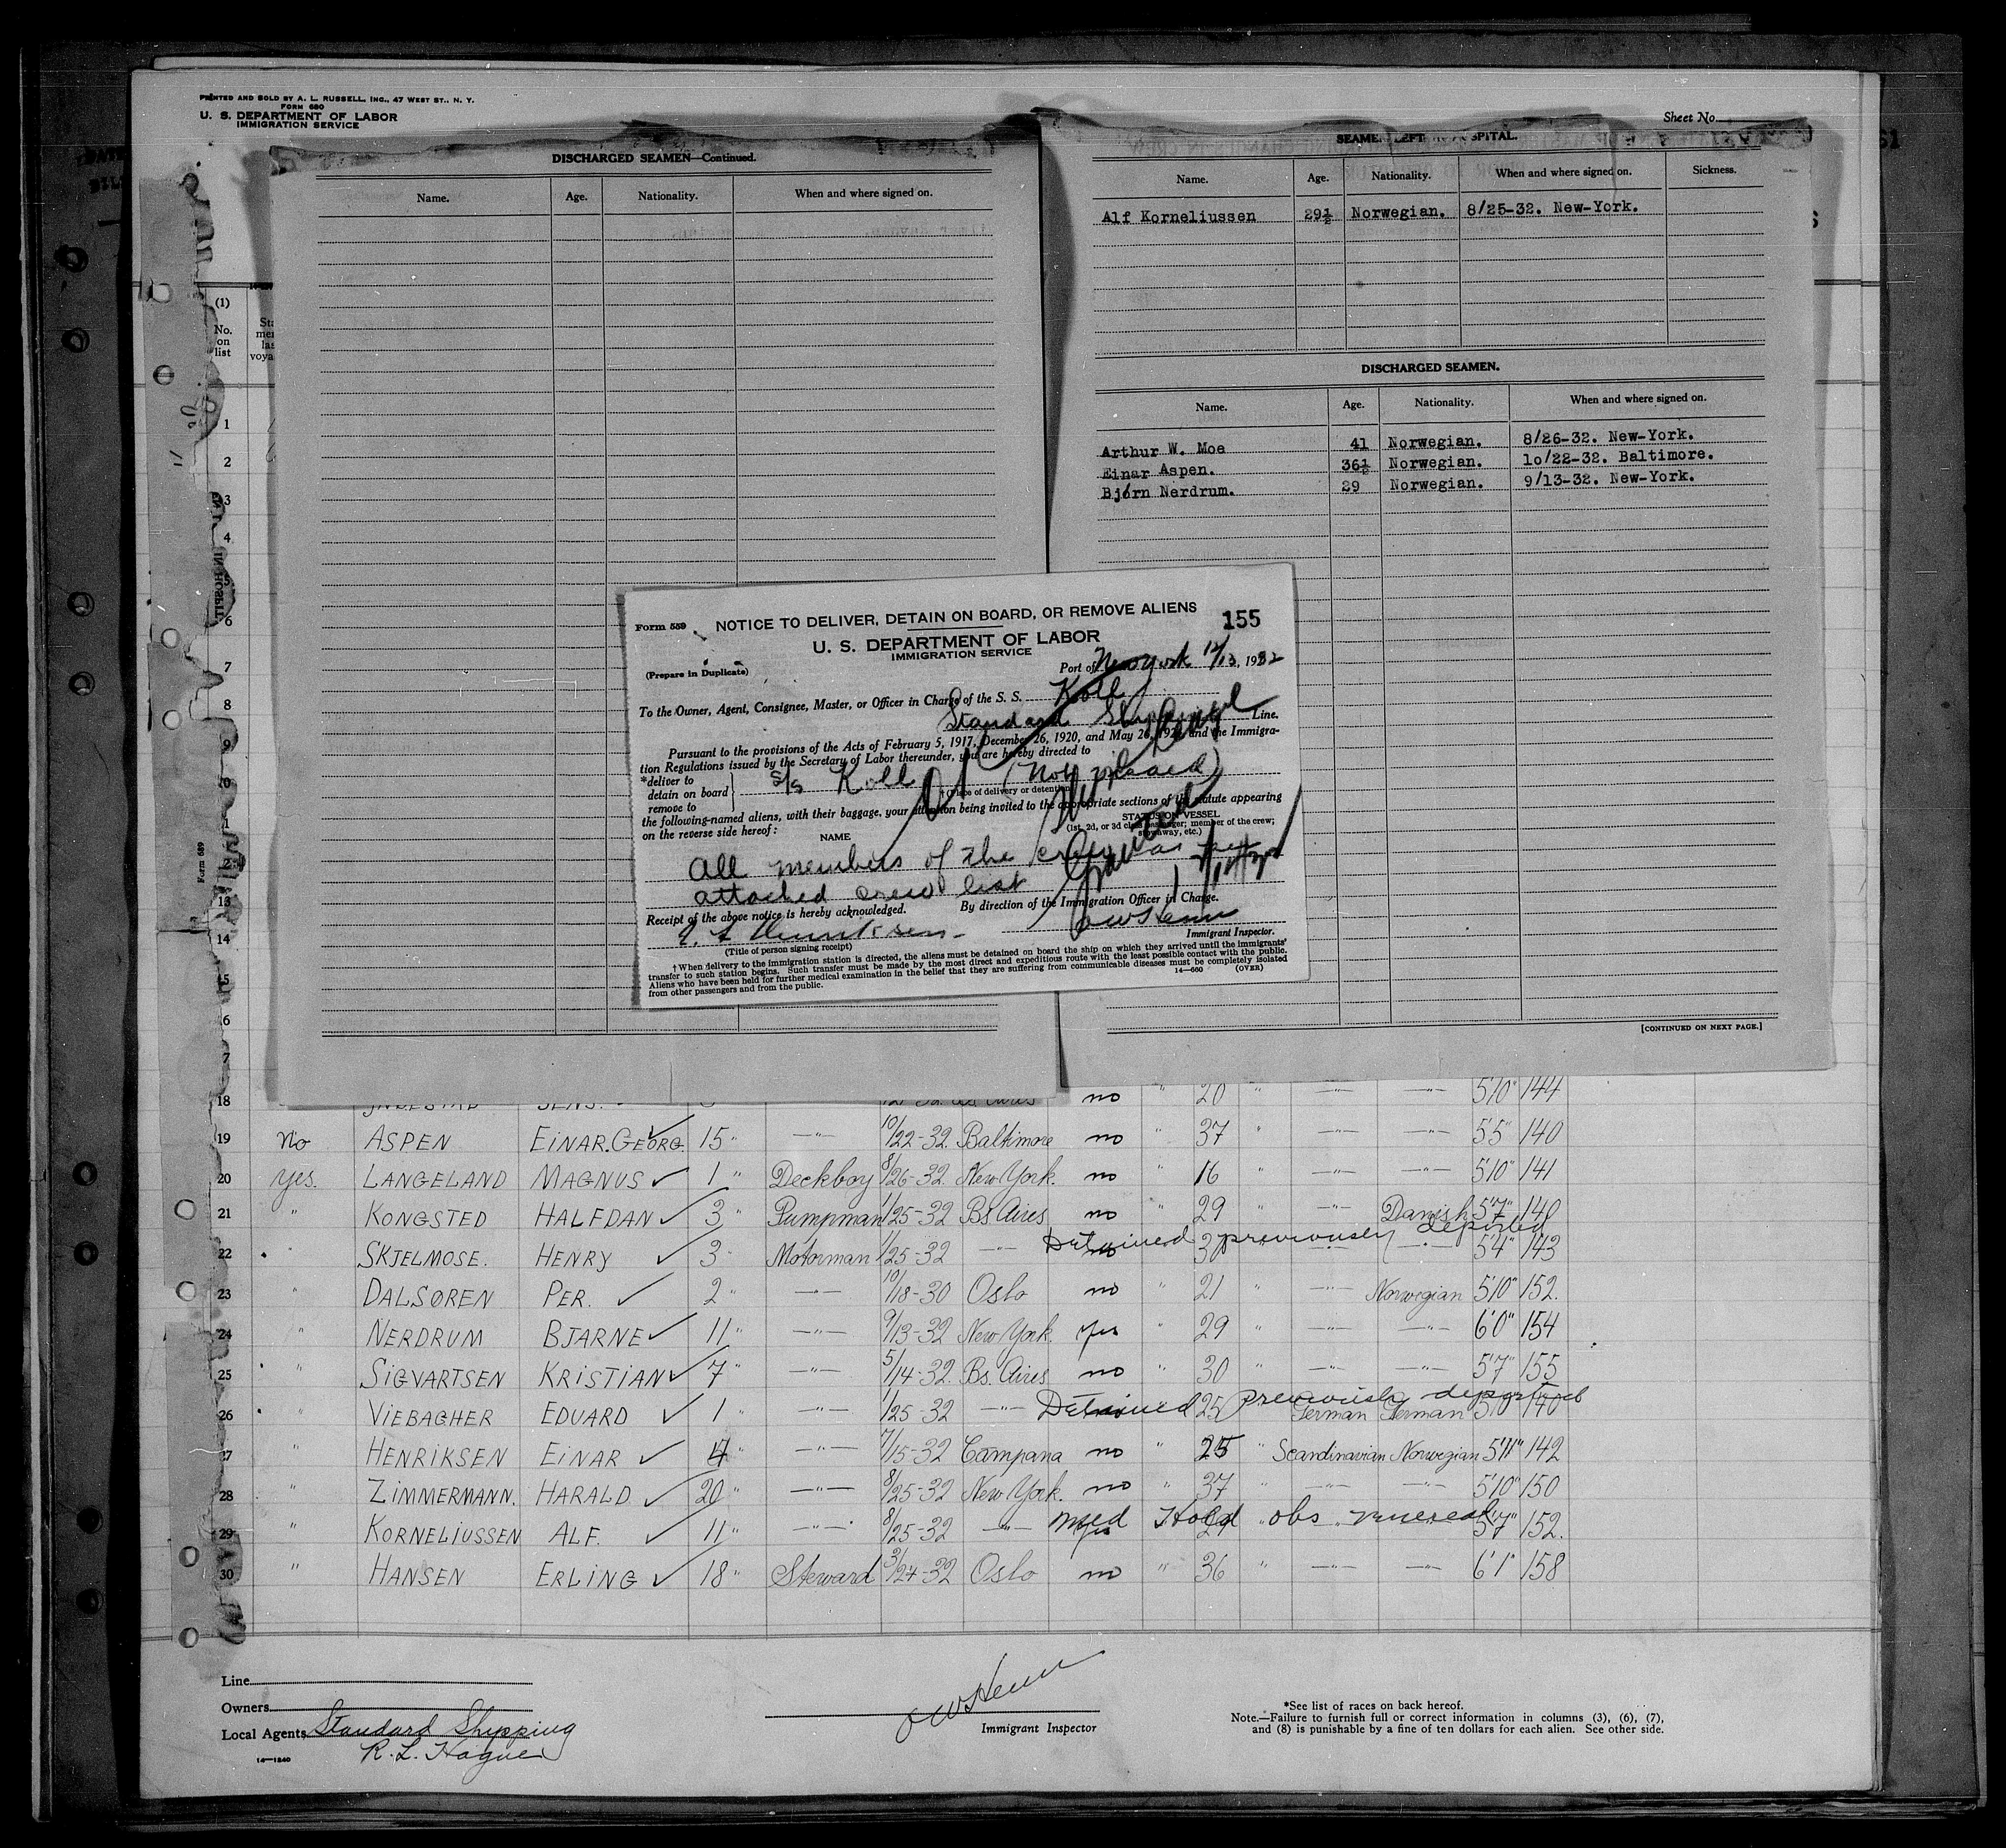 PRINTED AND SOLD BY A. L. RUSSELL, INC., 47 WEST ST., N. Y.
FORM 680
U. S. DEPARTMENT OF LABOR
IMMIGRATION SERVICE
Sheet No.
DISCHARGED SEAMEN—Continued.
Name. Age. Nationality. When and where signed on.
Name. Age. Nationality. When and where signed on. Sickness.
Alf Korneliussen 29½ Norwegian. 8/25-32. New-York.
DISCHARGED SEAMEN.
Name. Age. Nationality. When and where signed on.
Arthur W. Moe 41 Norwegian. 8/26-32. New-York.
Einar Aspen. 36½ Norwegian. 10/22-32. Baltimore.
Bjørn Nerdrum. 29 Norwegian. 9/13-32. New-York.
[CONTINUED ON NEXT PAGE.]
(1)
No. on list
1
2
3
4
5
6
7
8
9
Form 689
13
14
Form 559
NOTICE TO DELIVER, DETAIN ON BOARD, OR REMOVE ALIENS
155
U. S. DEPARTMENT OF LABOR
IMMIGRATION SERVICE
(Prepare in Duplicate)
Port of New York 12/13, 1932
To the Owner, Agent, Consignee, Master, or Officer in Charge of the S. S. Koll
Standard Shipping Line.
Pursuant to the provisions of the Acts of February 5, 1917, December 26, 1920, and May 26, 1924, and the Immigra-
tion Regulations issued by the Secretary of Labor thereunder, you are hereby directed to
*deliver to
detain on board
remove to
S/S Koll
(Place of delivery or detention)
the following-named aliens, with their baggage, your attention being invited to the appropriate sections of the statute appearing
on the reverse side hereof:
NAME
STATUS ON VESSEL
(1st, 2d, or 3d class passenger; member of the crew; stowaway, etc.)
All members of the crew as per
attached crew list
Receipt of the above notice is hereby acknowledged.
By direction of the Immigration Officer in Charge.
Immigrant Inspector.
(Title of person signing receipt)
† When delivery to the immigration station is directed, the aliens must be detained on board the ship on which they arrived until the immigrants'
transfer to such station begins. Such transfer must be made by the most direct and expeditious route with the least possible contact with the public.
Aliens who have been held for further medical examination in the belief that they are suffering from communicable diseases must be completely isolated
from other passengers and from the public.
14—660 (OVER)
18 no " 20 " —"— —"— 5'10" 144
19 no ASPEN EINAR.GEORG. 15 " —"— 10/22-32. Baltimore no " 37 " —"— —"— 5'5" 140
20 yes. LANGELAND MAGNUS ✓ 1 " Deckboy 8/26-32. New York. no " 16 " —"— —"— 5'10" 141
21 " KONGSTED HALFDAN ✓ 3 " Pumpman 1/25-32 Bs Aires no " 29 " —"— Danish 5'7" 140
22 " SKJELMOSE. HENRY ✓ 3 " Motorman 1/25-32 —"— Detained previously deported 30 5'4" 143
23 " DALSØREN PER. ✓ 2 " —"— 10/18-30 Oslo no " 21 " —"— Norwegian 5'10" 152.
24 " NERDRUM BJARNE ✓ 11 " —"— 9/13-32 New York. yes " 29 " —"— —"— 6'0" 154
25 " SIGVARTSEN KRISTIAN ✓ 7 " —"— 5/14-32 Bs. Aires no " 30 " —"— —"— 5'7" 155
26 " VIEBAGHER EDUARD ✓ 1 " —"— 1/25-32 —"— Detained previously deported 25 German German 5'10" 140
27 " HENRIKSEN EINAR ✓ 4 " —"— 7/15-32 Campana no " 25 " Scandinavian Norwegian 5'11" 142
28 " ZIMMERMANN. HARALD ✓ 20 " —"— 8/25-32 New York. no " 37 " —"— —"— 5'10" 150
29 " KORNELIUSSEN ALF. ✓ 11 " —"— 8/25-32 —"— yes med Hold obs venereal 29 5'7" 152.
30 " HANSEN ERLING ✓ 18 " Steward 3/24-32 Oslo no " 36 " —"— —"— 6'1" 158
Line
Owners
Local Agents Standard Shipping
R. L. Hague
14—1240
Immigrant Inspector
*See list of races on back hereof.
Note.—Failure to furnish full or correct information in columns (3), (6), (7),
and (8) is punishable by a fine of ten dollars for each alien. See other side.